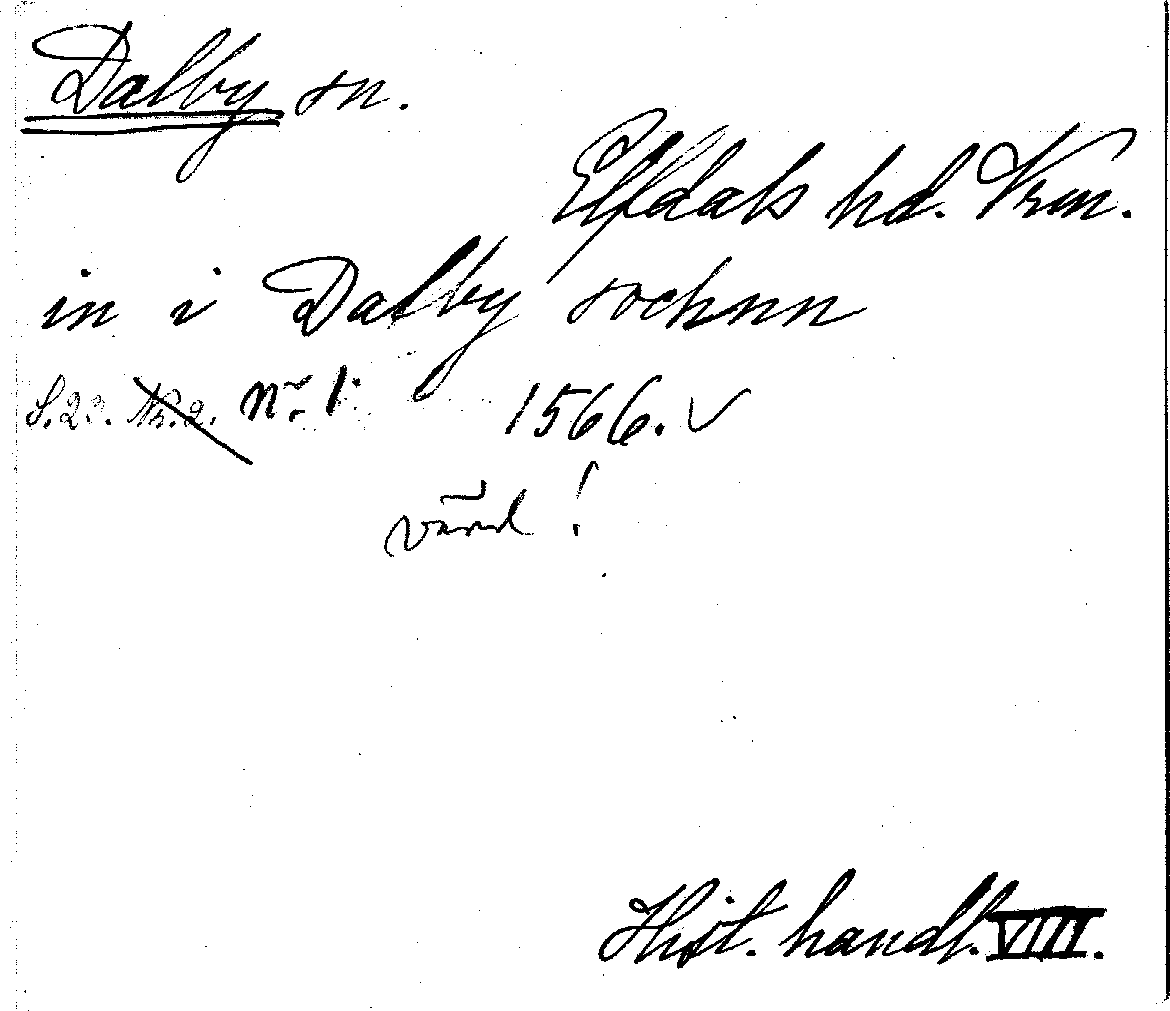 Dalby sn.
Elfdals hd. Vrm.
in i Dalby sochnn
S. 23. Nr. 2. nr. 1.
1566. ✓
värd !
Hist. handl. VIII.